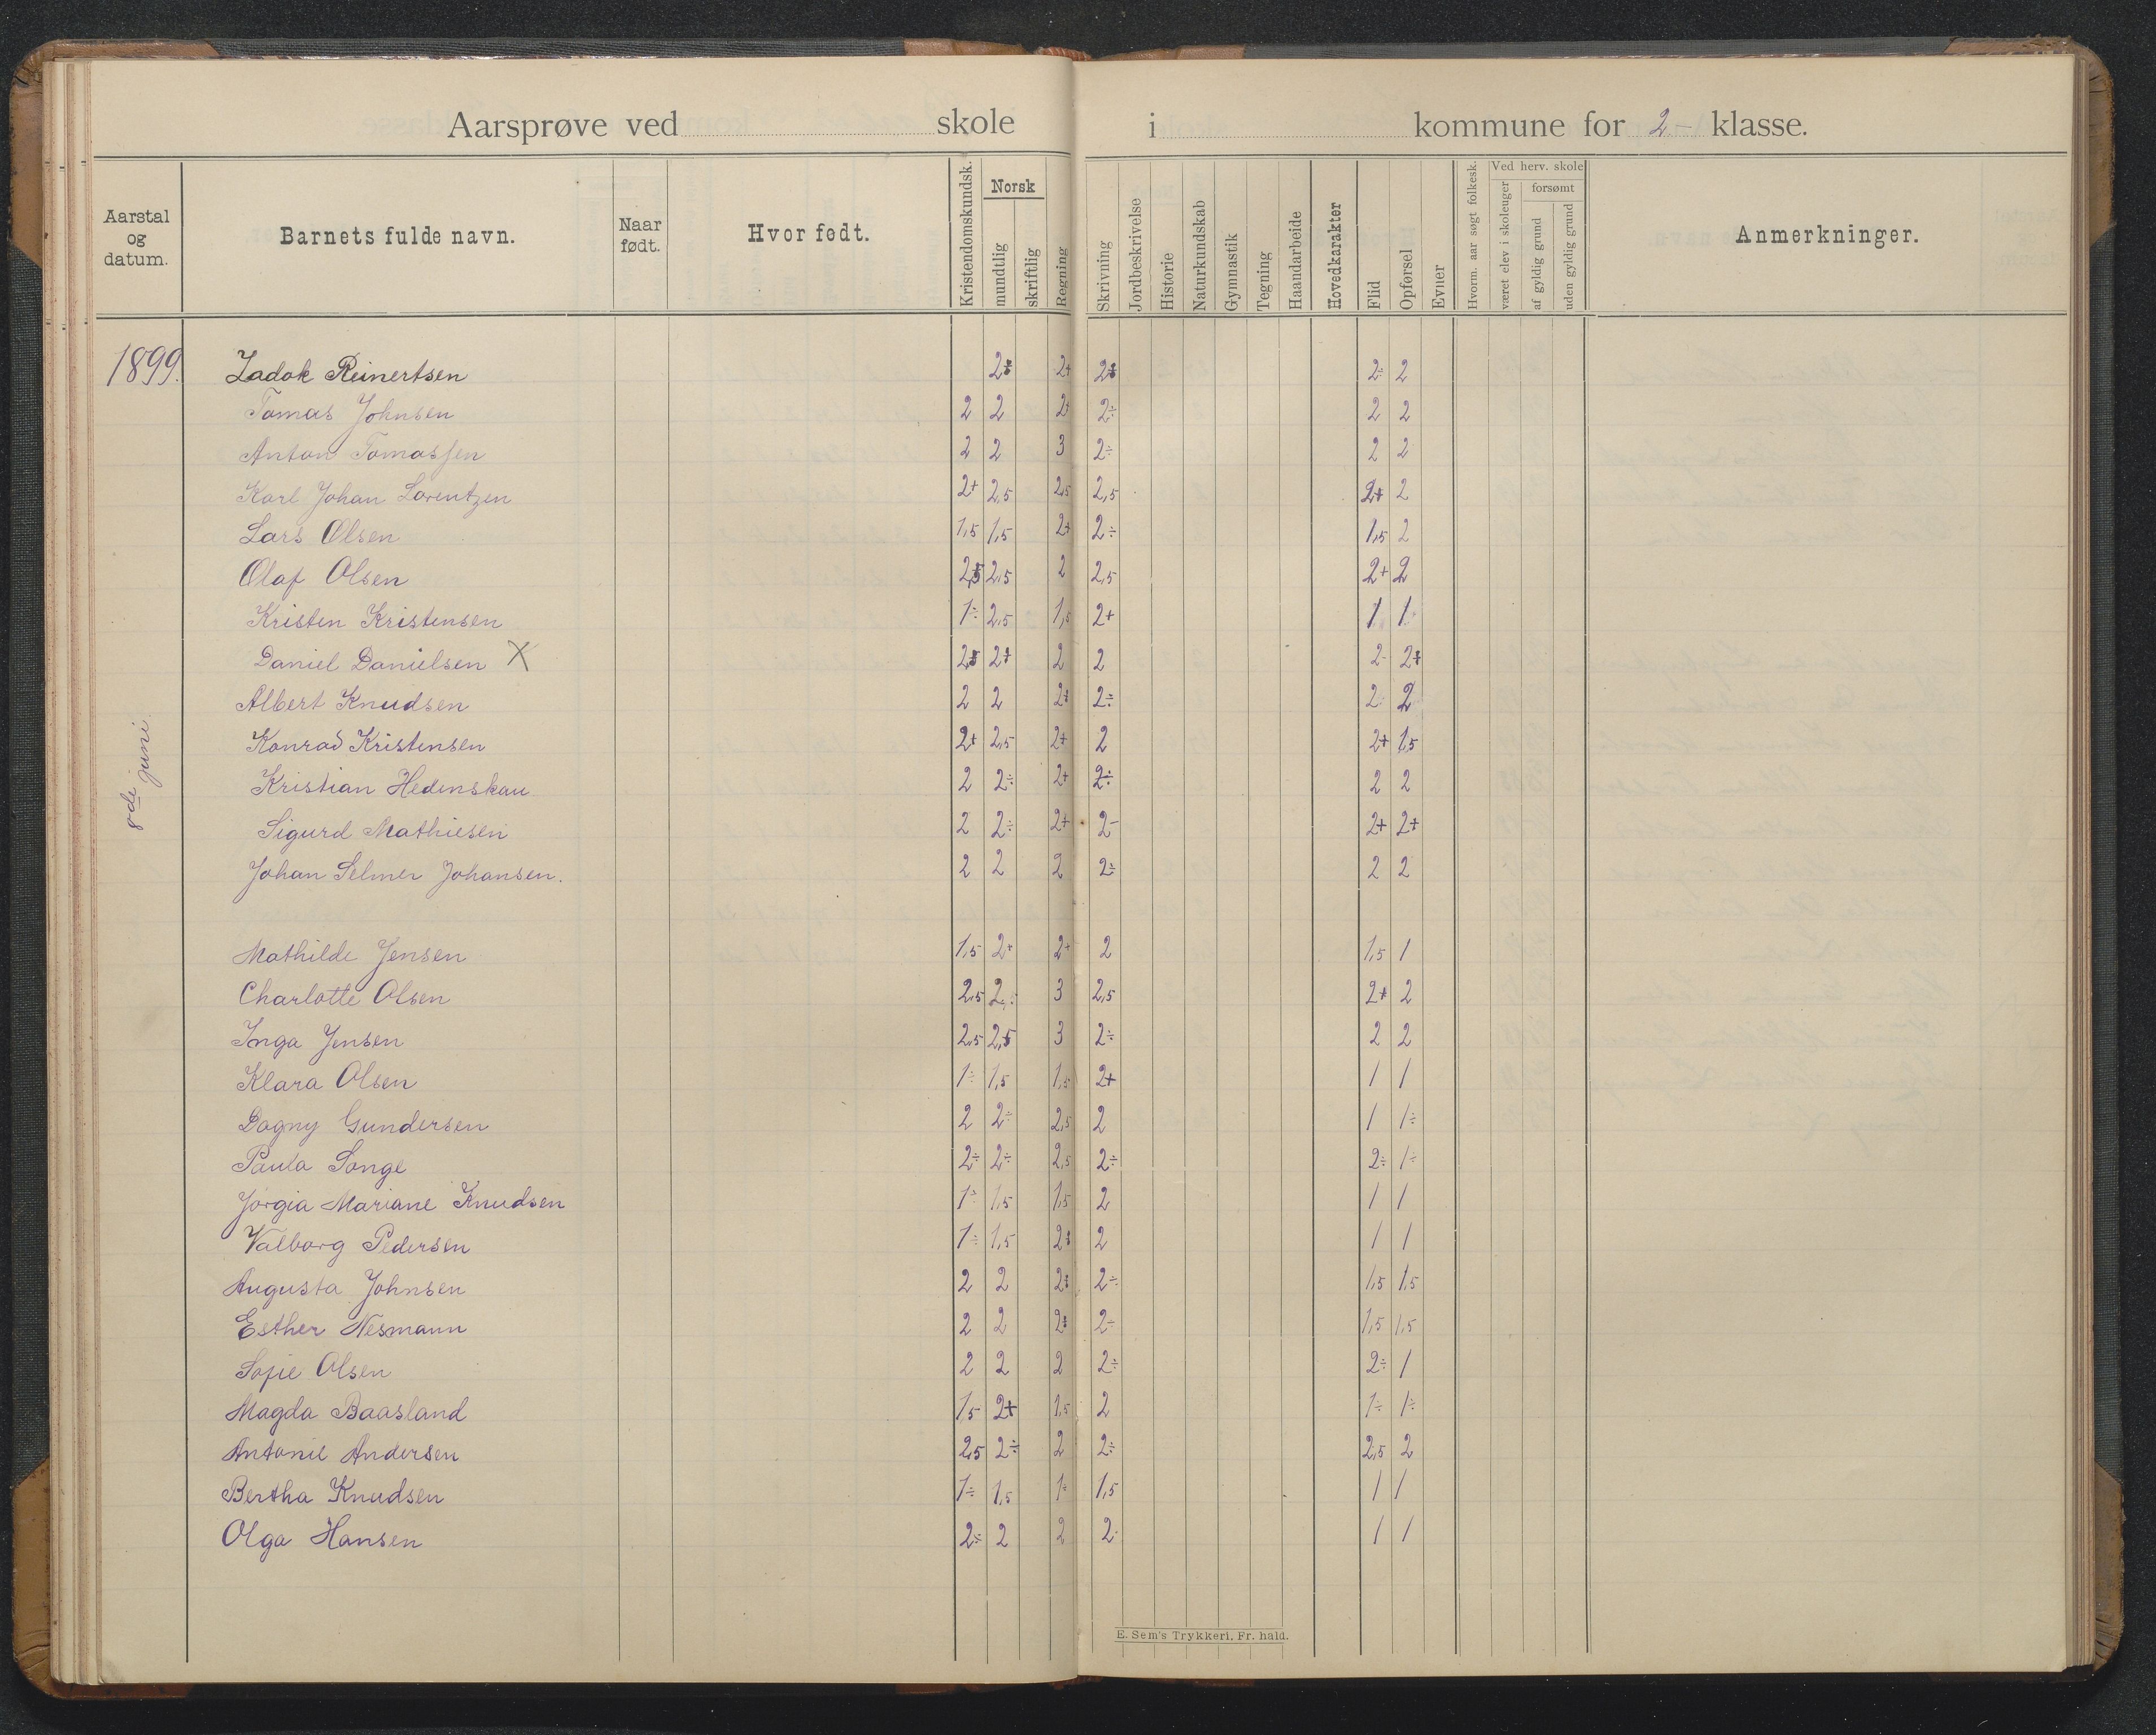 Aarsprøve ved skole i kommune for 2- klasse.
Aarstal og datum.
Barnets fulde navn.
Naar født.
Hvor født.
Kristendomskundsk.
Norsk
mundtlig
skriftlig
Regning
Skrivning
Jordbeskrivelse
Historie
Naturkundskab
Gymnastik
Tegning
Haandarbeide
Hovedkarakter
Flid
Opførsel
Evner
Hvorm. aar søgt folkesk.
Ved herv. skole
været elev i skoleuger
forsømt
af gyldig grund
uden gyldig grund
Anmerkninger.
1899.
8de juni.
Zadok Reinertsen 2+ 2+ 2+ 2÷ 2
Tomas Johnsen 2 2 2+ 2÷ 2 2
Anton Tomassen 2 2 3 2÷ 2 2
Karl Johan Lorentzen 2+ 2,5 2,5 2,5 2+ 2
Lars Olsen 1,5 1,5 2+ 2÷ 1,5 2
Olaf Olsen 2,5 2,5 2 2,5 2+ 2
Kristen Kristensen 1÷ 2,5 1,5 2+ 1 1
Daniel Danielsen X 2,5 2+ 2 2 2- 2+
Albert Knudsen 2 2 2+ 2÷ 2 2
Konrad Kristensen 2+ 2,5 2+ 2 2+ 1,5
Kristian Hedenskau 2 2÷ 2+ 2÷ 2 2
Sigurd Mathiesen 2 2÷ 2+ 2- 2+ 2+
Johan Selmer Johansen. 2 2 2 2÷ 2 2
Mathilde Jensen 1,5 2+ 2+ 2 1,5 1
Charlotte Olsen 2,5 2,5 3 2,5 2+ 2
Inga Jensen 2,5 2,5 3 2÷ 2 2
Klara Olsen 1÷ 1,5 1,5 2+ 1 1
Dagny Gundersen 2 2÷ 2,5 2 1 1÷
Paula Songe 2÷ 2÷ 2,5 2÷ 2÷ 1÷
Jørgia Mariane Knudsen 1÷ 1,5 1,5 2 1 1
Valborg Pedersen 1÷ 1,5 2+ 2 1 1
Augusta Johnsen 2 2 2+ 2÷ 1,5 1,5
Esther Nesmann 2 2 2+ 2÷ 1,5 1,5
Sofie Olsen 2 2 2 2÷ 2÷ 1
Magda Baasland 1,5 2+ 1,5 2 1÷ 1÷
Antonie Andersen 2,5 2÷ 2 2÷ 2,5 2
Bertha Knudsen 1÷ 1,5 1÷ 1,5 1 1
Olga Hansen 2÷ 2 2 2 1 1
E. Sem's Trykkeri, Fr. hald.